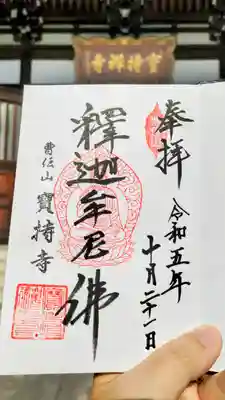 寶持禪寺
奉拝
令和五年
十月二十一日
釋迦牟尼佛
曹伝山 寶持寺